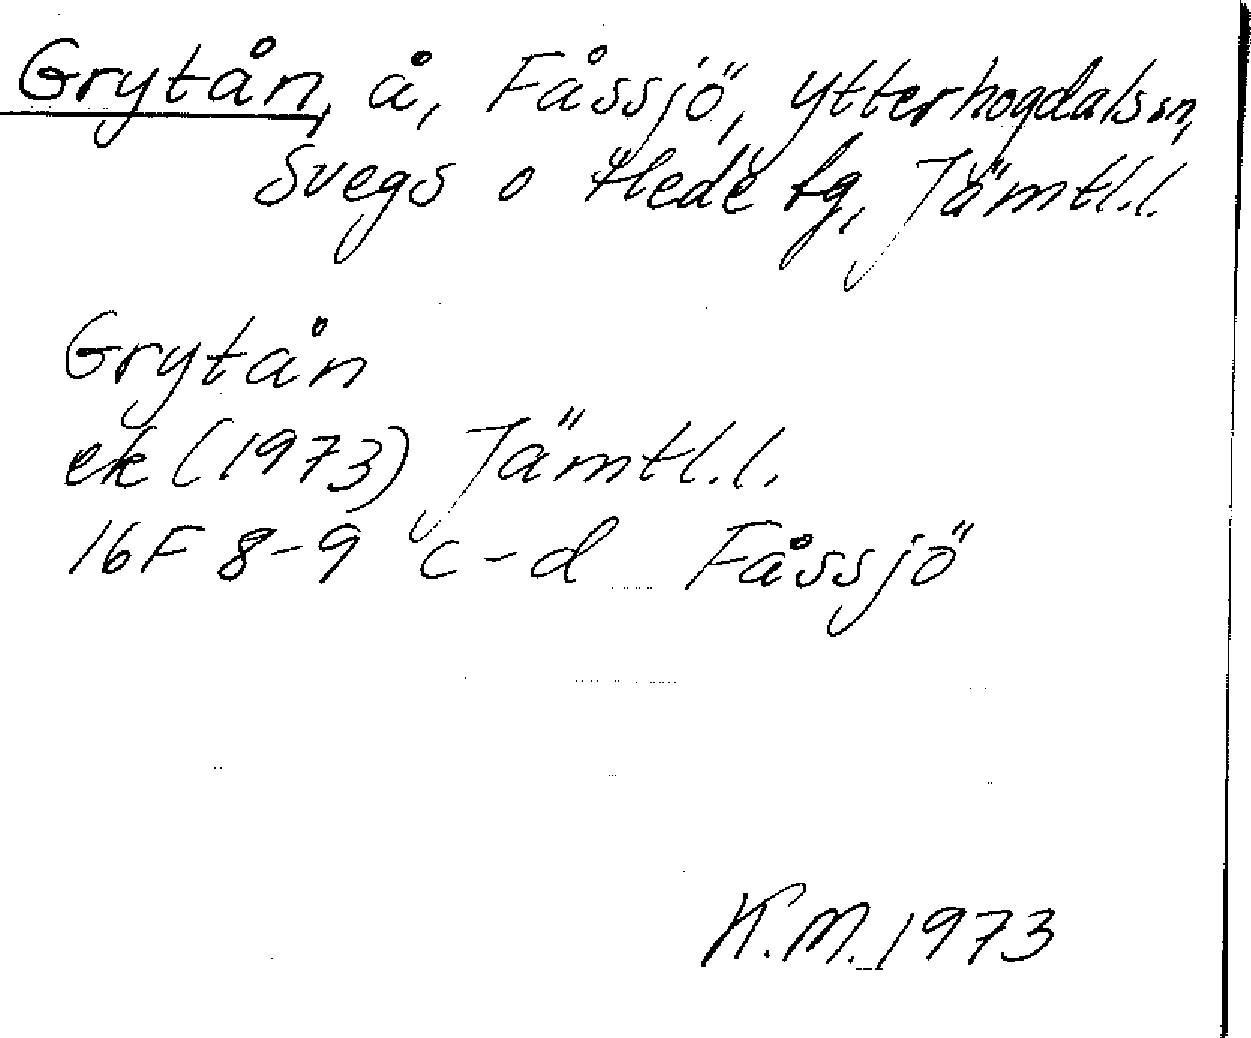 Grytån, å, Fåssjö, Ytterhogdals sn,
Svegs o Hede tg, Jämtl.l.
Grytån
ek (1973) Jämtl.l.
16F 8-9 c-d Fåssjö
K.M. 1973